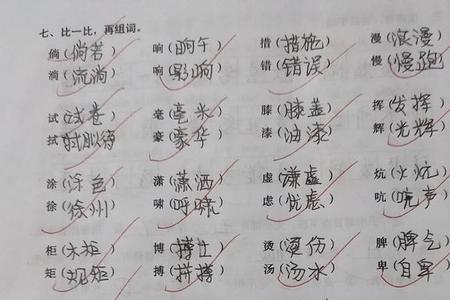 七、比一比，再组词。
倘（倘若） 晌（晌午） 措（措施） 漫（浪漫）
淌（流淌） 响（影响） 错（错误） 慢（慢跑）
试（试卷） 毫（毫米） 膝（膝盖） 挥（发挥）
拭（拭） 豪（豪华） 漆（油漆） 辉（光辉）
涂（涂色） 潇（潇洒） 虚（谦虚） 炕（火炕）
徐（徐州） 啸（呼啸） 虑（忧虑） 吭（吭声）
柜（木柜） 博（博士） 烫（烫伤） 脾（脾气）
矩（规矩） 搏（拼搏） 汤（汤水） 卑（自卑）